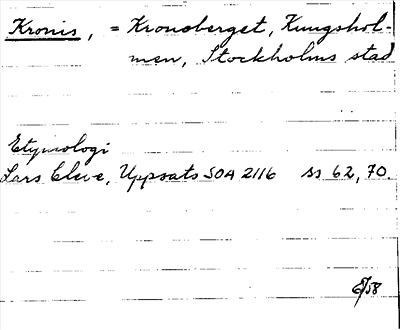 Kronis, = Kronoberget, Kungshol-
men, Stockholms stad
Etymologi
Lars Cleve, Uppsats SOA 2116 ss 62, 70.